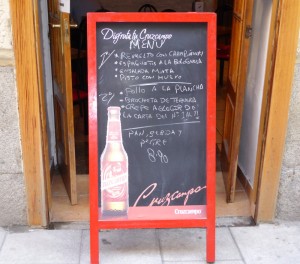 Disfruta tu Cruzcampo
MENÚ
1º REVUELTO CON CHAMPIÑONES
ESPAGHETIS A LA BOLOÑESA
ENSALADA MIXTA
PISTO CON HUEVO
2º POLLO A LA PLANCHA
DE TERNERA
A ELEGIR DE
LA CARTA DEL Nº
PAN, BEBIDA Y
POSTRE
8'-€
Cruzcampo
Cruzcampo